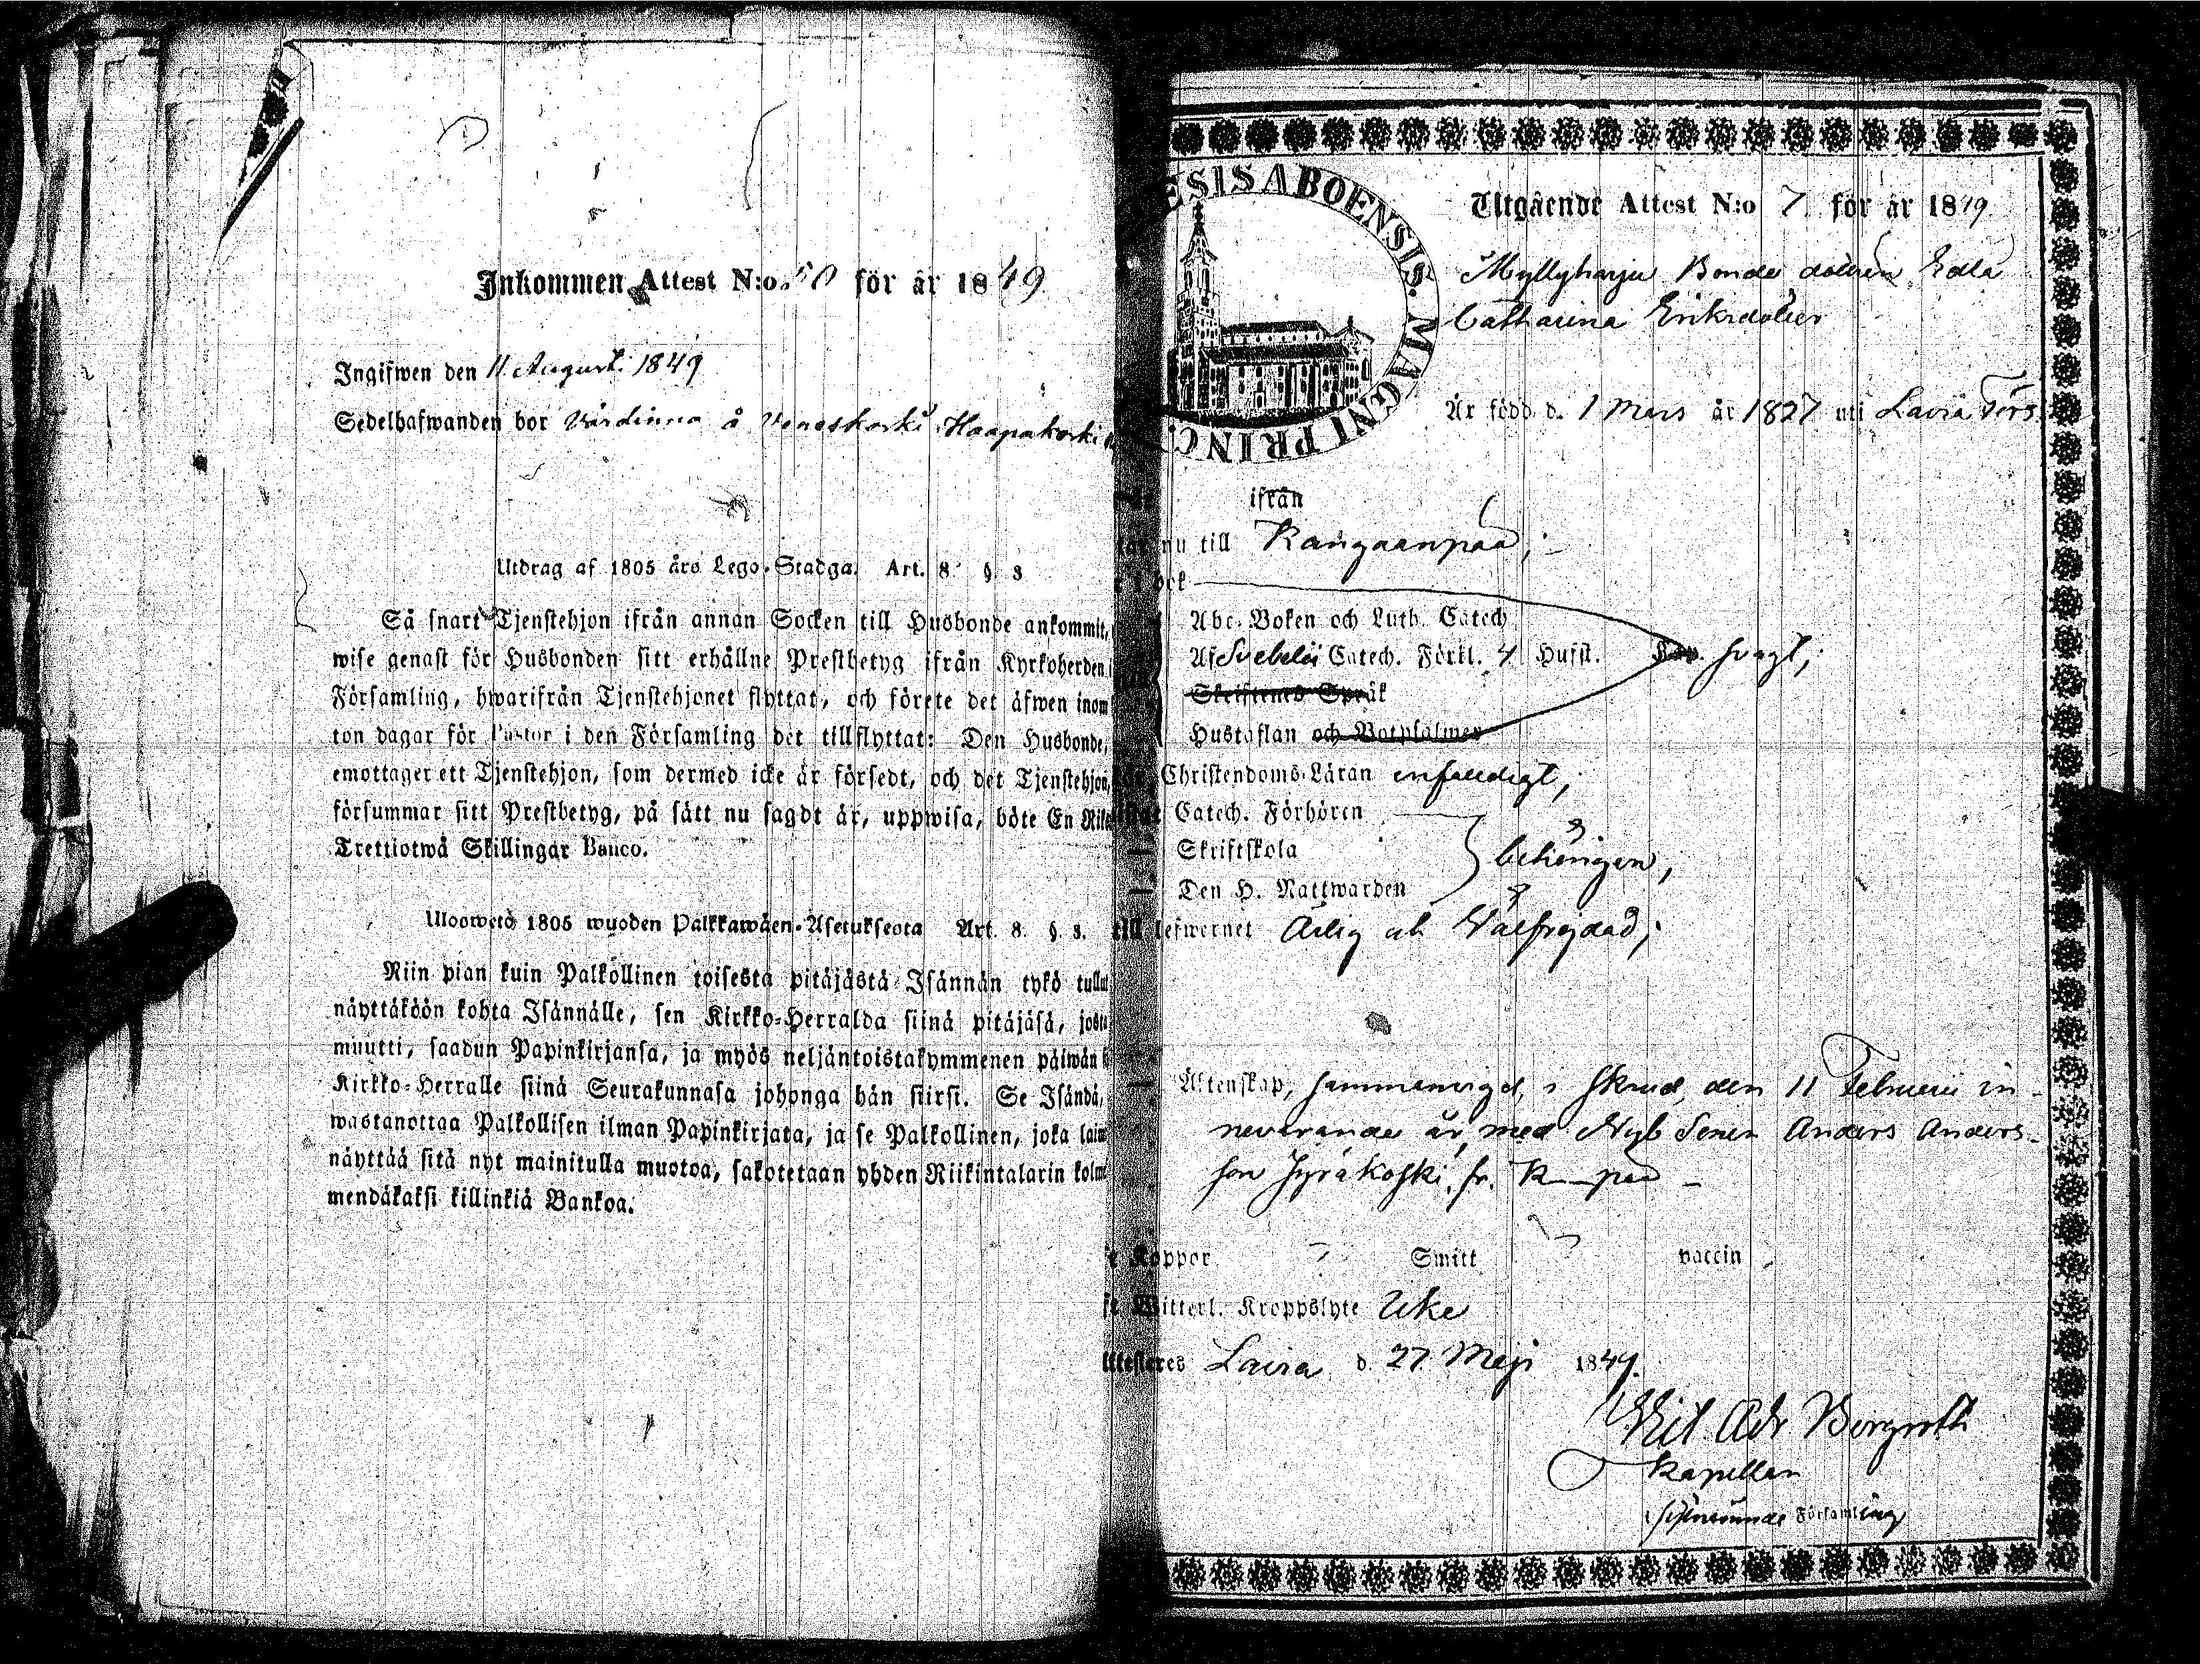 Inkommen Attest N:o 50 för år 1849
Ingifwen den 11 August 1849
Sedelhafwanden bor Värdinna å Veneskoski Haapakoski
Utdrag af 1805 års Lego-Stadga. Art. 8. §. 3
Så snart Tjenstehjon ifrån annan Socken till Husbonde ankommit,
wise genast för Husbonden sitt erhållne Prestbetyg ifrån Kyrkoherden i
Församling, hwarifrån Tjenstehjonet flyttat, och förete det äfwen inom
ton dagar för Pastor i den Församling det tillflyttat: Den Husbonde,
emottager ett Tjenstehjon, som dermed icke är försedt, och det Tjenstehjon,
försummar sitt Prestbetyg, på sätt nu sagdt är, uppwisa, böte En Riks
Trettiotwå Skillingar Banco.
Uloswetö 1805 wuoden Palkkawäen-Asetuksesta Art. 8. §. 3.
Niin pian kuin Palkollinen toisesta pitäjästä Isännän tykö tullut
näyttäköön kohta Isännälle, sen Kirkko-Herralda siinä pitäjäsä, josta
muutti, saadun Papinkirjansa, ja myös neljäntoistakymmenen päiwän
Kirkko-Herralle siinä Seurakunnasa johonga hän siirsi. Se Isändä,
wastanottaa Palkollisen ilman Papinkirjata, ja se Palkollinen, joka laim
näyttää sitä nyt mainitulla muotoa, sakotetaan yhden Riikintalarin kolm
mendäkaksi killinkiä Bankoa.
ESIS ABOENSIS. MAGNI PRINC.
Utgående Attest N:o 7 för år 1849
Myllyharju Bonde dottren Edla
Catharina Eriksdotter
Är född d. 1 Mars år 1827 uti Lavia Förs.
ifrån
nu till Kangaanpää;
bok
Abc-Boken och Luth. Catech
Af Svebelii Catech. Förkl. 4 Hufst. svagt;
Skriftenes Språk
Hustaflan och Botpsalmer
Christendoms-Läran enfaldigt;
Catech. Förhören
Skriftskola behörigen,
Den H. Nattwarden
till lefwernet Ärlig och Välfrejdad;
Äktenskap, sammanvigd, i Skrud, den 11 Februarii in-
nevarande år, med Nyb Sonen Anders Anders-
son Jyräkoski, fr. K-pää
Koppor Smitt vaccin
Witterl. Kroppslyte Icke
Attesteres Lavia d. 27 Maji 1849.
Wil Adr Bergroth
Kapellan
Församling